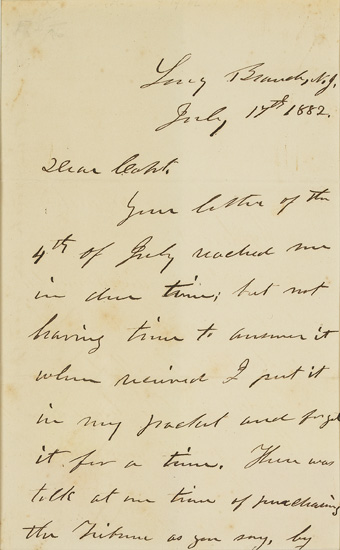 Long Branch, N.J.
July 17th 1882.
Dear Capt.
Your letter of the
4th of July reached me
in due time; but not
having time to answer it
when received I put it
in my pocket and forgot
it for a time. There was
talk at one time of purchasing
the Tribune as you say, by